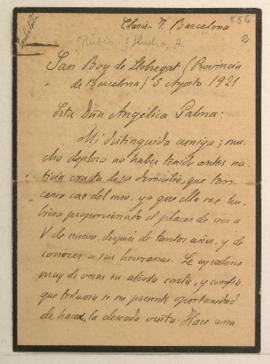 Claris - 7. Barcelona
856
2
Contestada
Rubió y Lluch, A.
San Boy de Llobregat (Provincia
de Barcelona) 5 Agosto 1921
Srta Dña Angélica Palma:
Mi distinguida amiga; mu-
cho deploro no haber tenido antes no-
ticia exacta de su domicilio, que tan
cerca cae del mio, ya que ello me hu-
biera proporcionado el placer de ver a
V de nuevo, despues de tantos años, y de
conocer a sus hermanas. Le agradezco
muy de veras su atenta carta, y confio
que todavia se me presente oportunidad
de hacer la deseada visita. Hace una